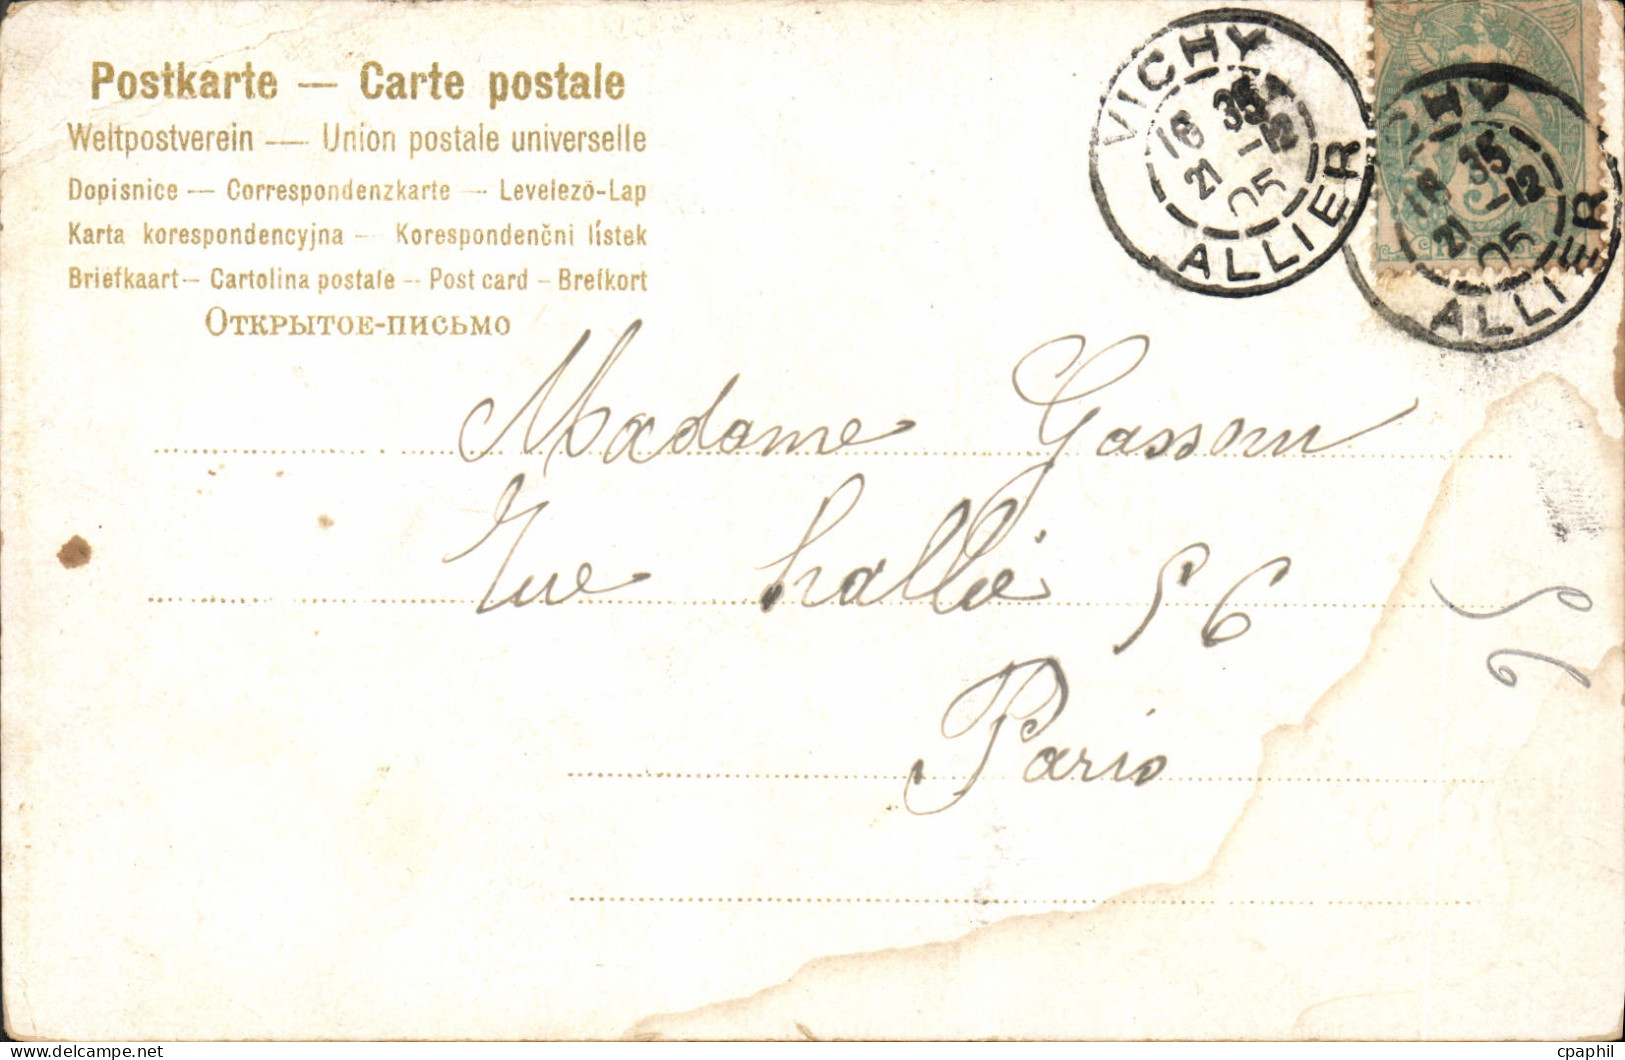 Postkarte — Carte postale
Weltpostverein — Union postale universelle
Dopisnice — Correspondenzkarte — Levelező-Lap
Karta korespondencyjna — Korespondenční lístek
Briefkaart — Cartolina postale — Post card — Brefkort
Открытое-письмо
VICHY
18 35
21 -12
05
ALLIER
18 35
21 -12
05
ALLIER
5
Madame
rue Hallé 56
Paris
56
cpaphil